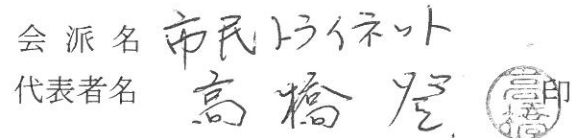 会派名 市民トライネット
代表者名 高橋 登 印
高橋